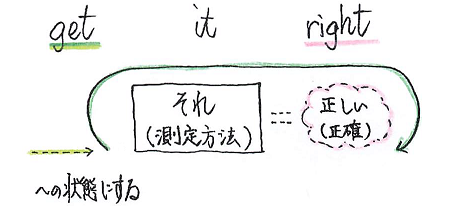 get it right
それ
(測定方法)
正しい
(正確)
への状態にする